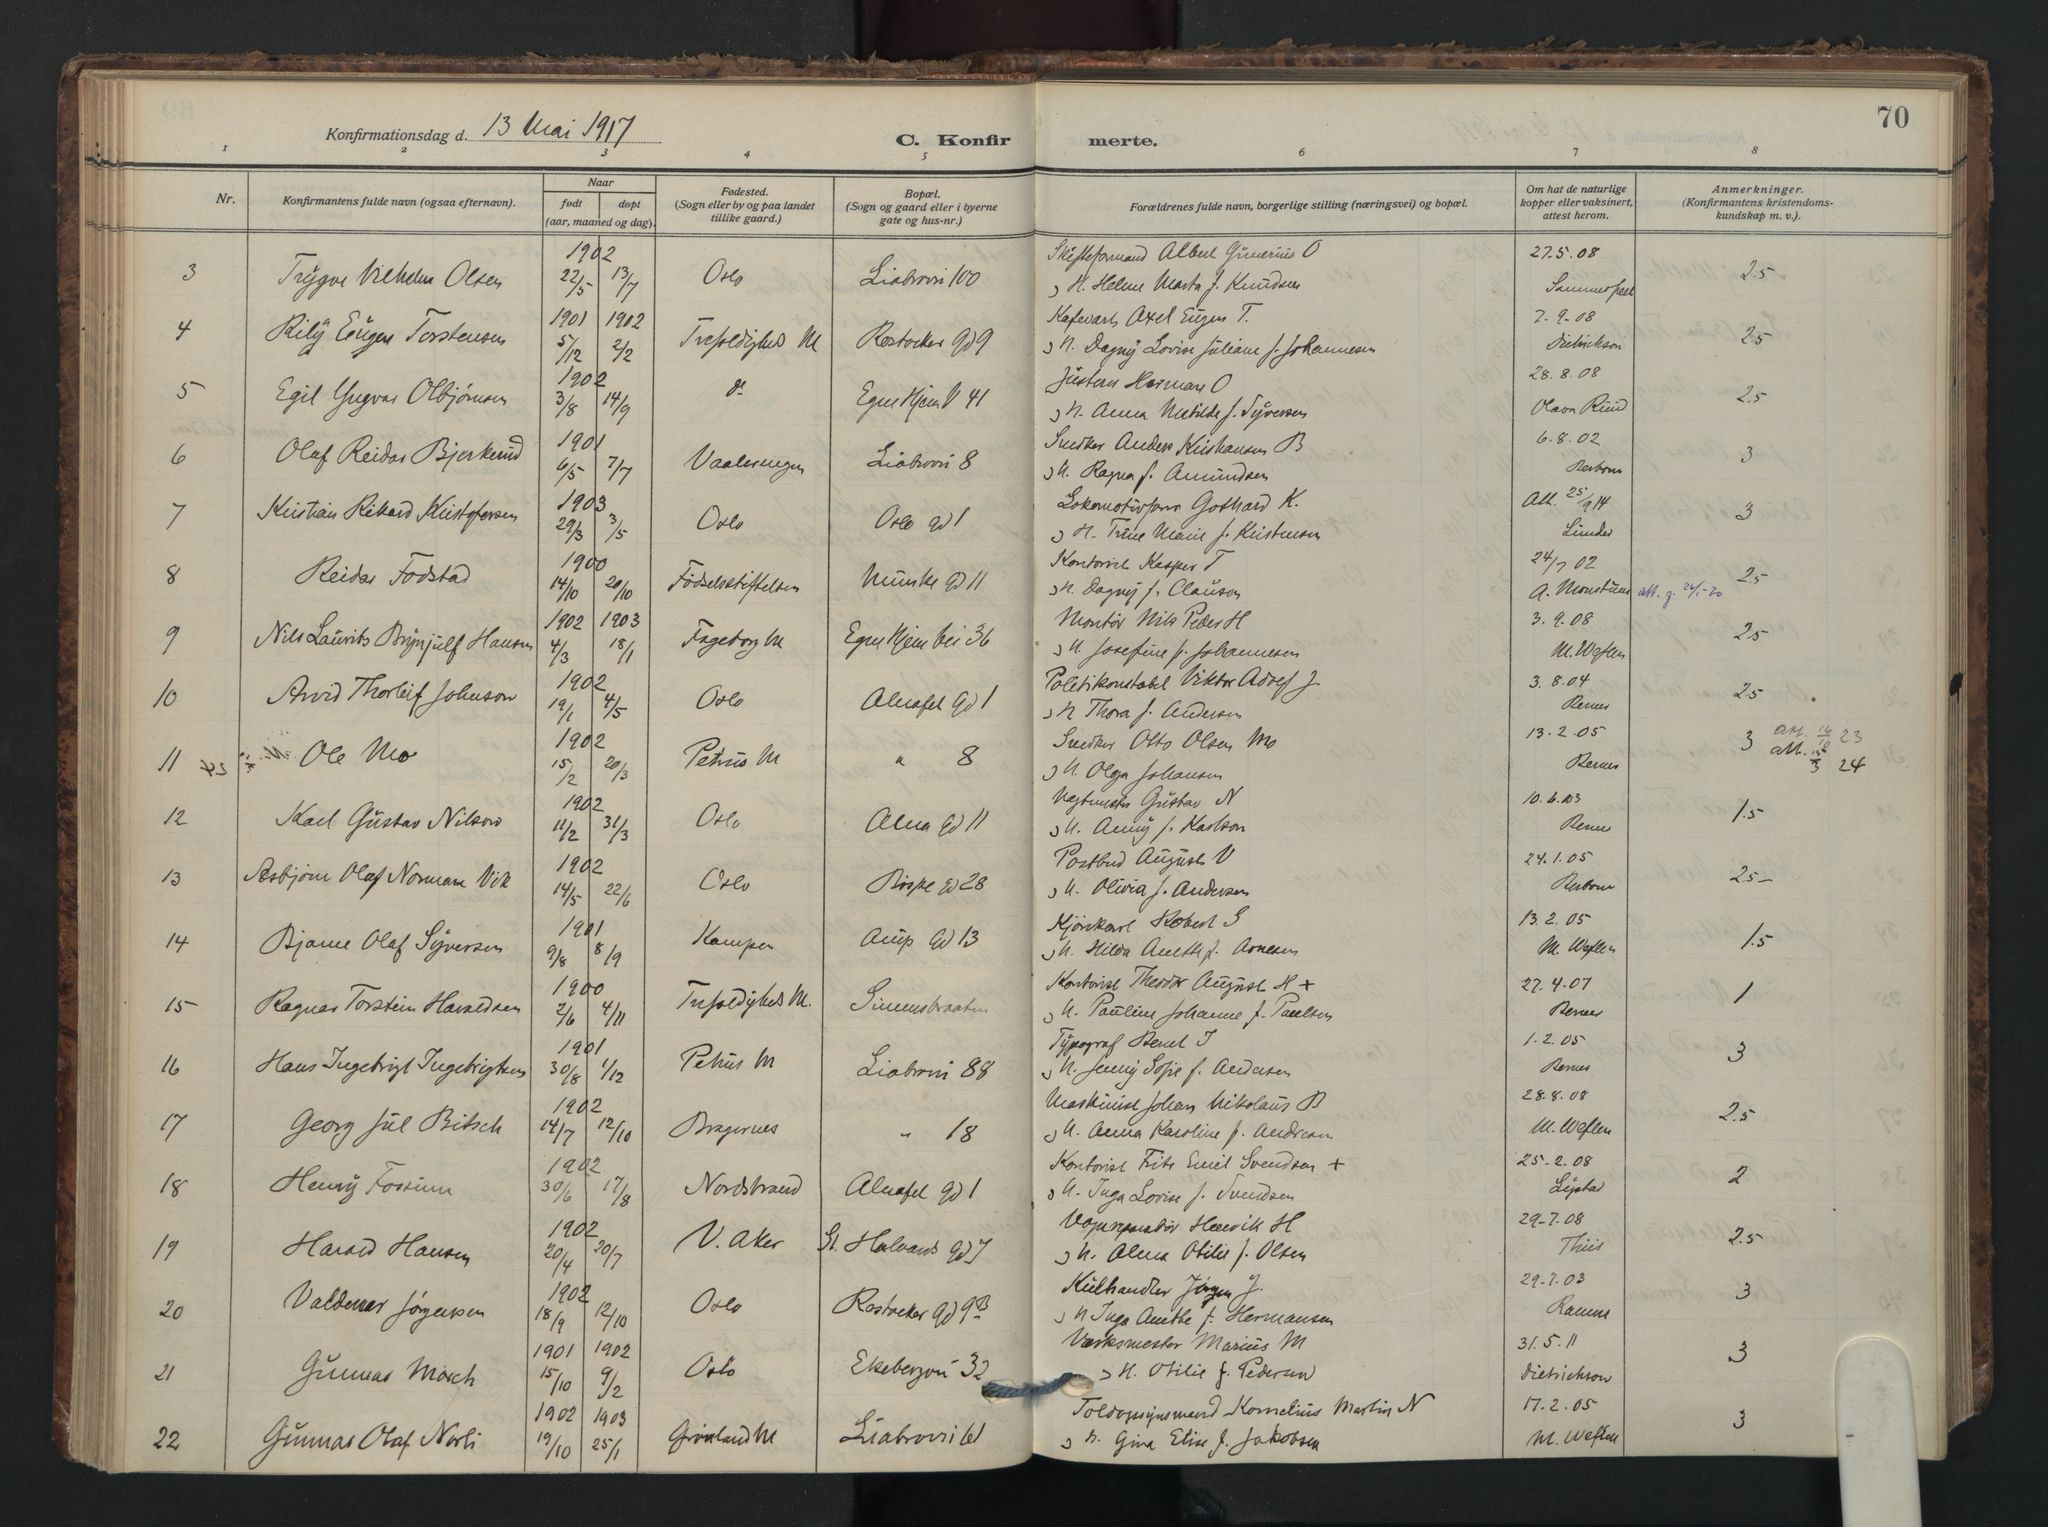 70
Konfirmationsdag d. 13 Mai 1917
C. Konfir merte.
1 2 3 4 5 6 7 8
Nr.
Konfirmantens fulde navn (ogsaa efternavn).
Naar
født døpt
(aar, maaned og dag).
Fødested.
(Sogn eller by og paa landet
tillike gaard.)
Bopæl.
(Sogn og gaard eller i byerne
gate og hus-nr.)
Forældrenes fulde navn, borgerlige stilling (næringsvei) og bopæl.
Om hat de naturlige
kopper eller vaksinert,
attest herom.
Anmerkninger.
(Konfirmantens kristendoms-
kundskap m. v.).
1902 Albert Gunerius O 27.5.08
3 Trygve Vilhelm Olsen 22/5 13/7 Oslo Liabrovei 100 H. Helene Marta f. Knudsen 2.5
1901 1902 Kafevært Axel Eugen T. 7.9-08
4 Eugen Torstensen 5/12 2/2 Trefoldighets M Rostocker gd 9 H. Dagny Lovise Juliane f. Johannesen Dietrichson 2.5
1902 Herman O 28.8.08
5 Egil Yngvar Olbjørnsen 3/8 14/9 do Egne Hjem V 41 H. Anna Matilde f. Syversen Olava Ruud 2.5
1901 Snedker Anders Kristiansen B 6.8.02
6 Olaf Reidar Bjerkerud 6/5 7/7 Vaalerengen Liabrovei 8 H. Ragna f. Amundsen Berbom 3
1903 Gothard K. Att. 25/9 14
7 Kristian Rikard Kristofersen 29/3 3/5 Oslo Oslo gd 1 H. Trine Marie f. Kristensen Lunder 3
1900 Kontorist Kasper F 24/7 02
8 Reidar Fodstad 14/10 20/10 Fødselsstiftelsen Munke gd 11 H. Dagny f. Clauson A. Monstune 2.5
1902 1903 Montør Nils Peder H 3.9.08
9 Nils Laurits Brynjulf Hansen 4/3 18/1 Fageborg M Egne Hjem vei 36 H. Josefine f. Johannesen M. Weflen 2.5
1902 Politikonstabel Viktor Adolf J. 3.8.04
10 Arvid Thorleif Johnson 19/1 4/5 Oslo Alnafet gd 1 H Thora f. Andersen Berner 2.5
1902 Snedker Otto Olsen Mo 13.2.05 att. 16/10 23
11 Ole Mo 15/2 20/3 Petrus M " 8 H. Olga Johansen Berner 3 att. 24
1902 Vegtmester Gustav N 10.6.03
12 Karl Gustav Nilson 11/2 31/3 Oslo Alna gd 11 H. Anny f. Karlson Berner 1.5
1902 Postbud August V 24.1.05
13 Asbjørn Olaf Norman Vik 14/5 22/6 Oslo Bispe gd 28 H. Olivia f. Andersen Berbom 2.5-
1901 Kjørekarl Robert S 13.2.05
14 Bjarne Olaf Syversen 9/8 8/9 Kampen Arup gd 13 H. Hilda Anette f. Arnesen M. Weflen 1.5
1900 Kontorist Theodor August H + 27.4.07
15 Ragnar Torstein Haraldsen 2/6 4/11 Trefoldighets M. Simensbraaten H. Pauline Johanne f. Paulsen Berner 1
1901 Typograf Bernt I 1.2.05
16 Hans Ingebrigt Ingebrigtsen 30/8 1/12 Petrus M Liabrovei 88 H. Jenny Sofie f. Andersen Berner 3
1902 Maskinist Johan Nikolaus B 28.8.08
17 Georg Jul Bitsch 14/7 12/10 Bragernes " 18 H. Anna Karoline f. Andresen M. Weflen 2.5
1902 Kontorist Frits Emil Svendsen + 25-2.08
18 Henry Fossum 30/6 17/8 Nordstrand Alnafet gd 1 H. Inga Lovise f. Svendsen 2
1902 Vognreparatør Henrik H 29-7.08
19 Harald Hansen 20/4 20/7 V. Aker St. Halvards gd 7 H. Alma Otilie f. Olsen Thiis 2.5
1902 Kulhandler Jørgen J. 29-7.03
20 Valdemar Jørgensen 18/9 12/10 Oslo Rostocker gd 9B H Inga Anethe f. Hermansen Ramm 3
1901 1902 Verksmester Marius M 31.5.11
21 Gunnar Morch 15/10 9/2 Oslo Ekebergvei 32 H. Otilie f. Pedersen Dietrichson 3
1902 1903 Toldopsynsmand Kornelius Martin N 17.2.05
22 Gunnar Olaf Norli 19/10 25/1 Grønland M Liabrovei 61 H. Gina Elise f. Jakobsen M. Weflen 3